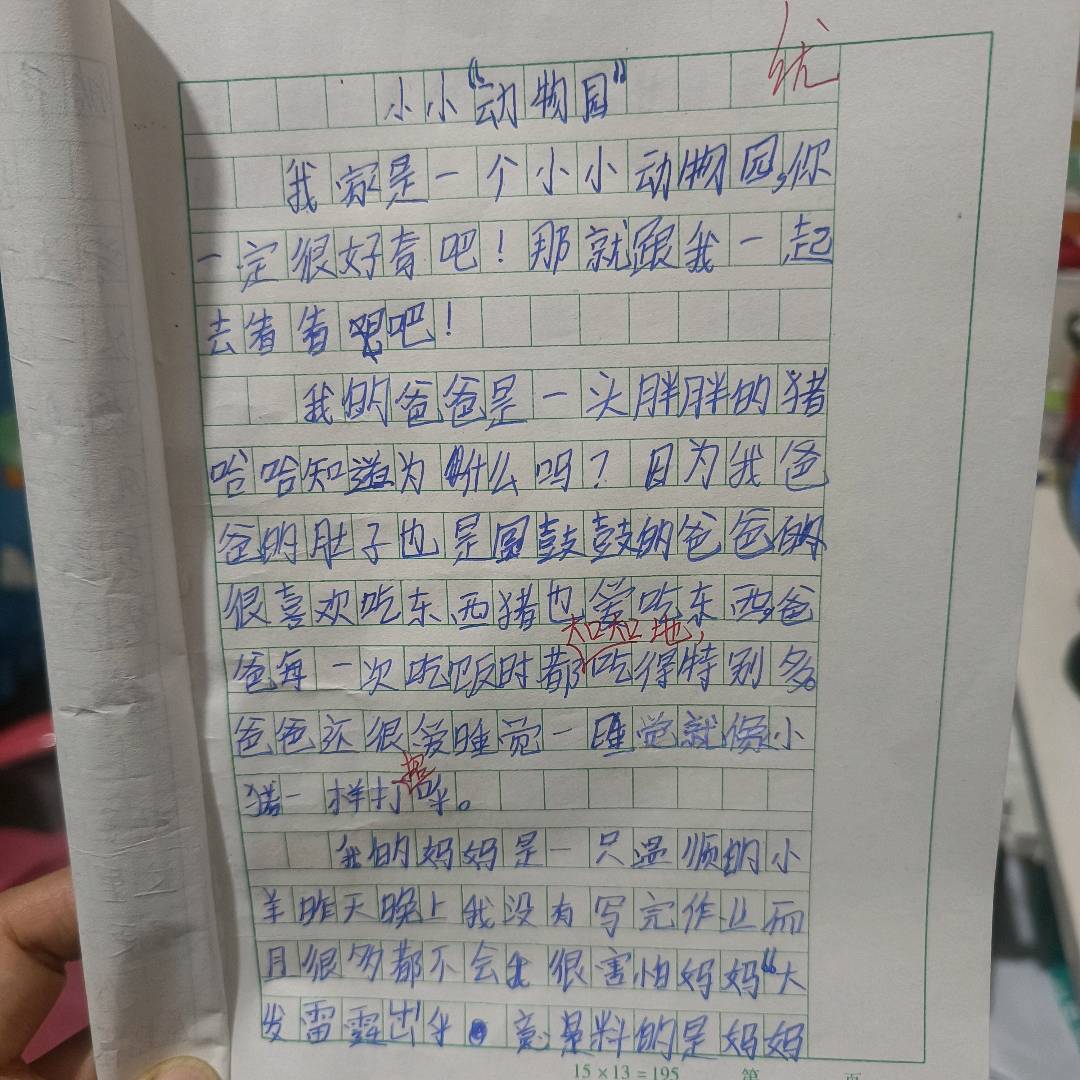 优
小小“动物园”
我家是一个小小动物园,你
一定很好奇吧!那就跟我一起
去看看吧!
我的爸爸是一头胖胖的猪
哈哈知道为什么吗?因为我爸
爸的肚子也是圆鼓鼓的爸爸的
很喜欢吃东西猪也爱吃东西,爸
知知地,
爸每一次吃饭时都吃得特别多。
爸爸还很爱睡觉一睡觉就像小
猪一样打
我的妈妈是一只温顺的小
羊昨天晚上我没有写完作业而
且很多都不会我很害怕妈妈“大
发雷霆出
15×13=195 第 页